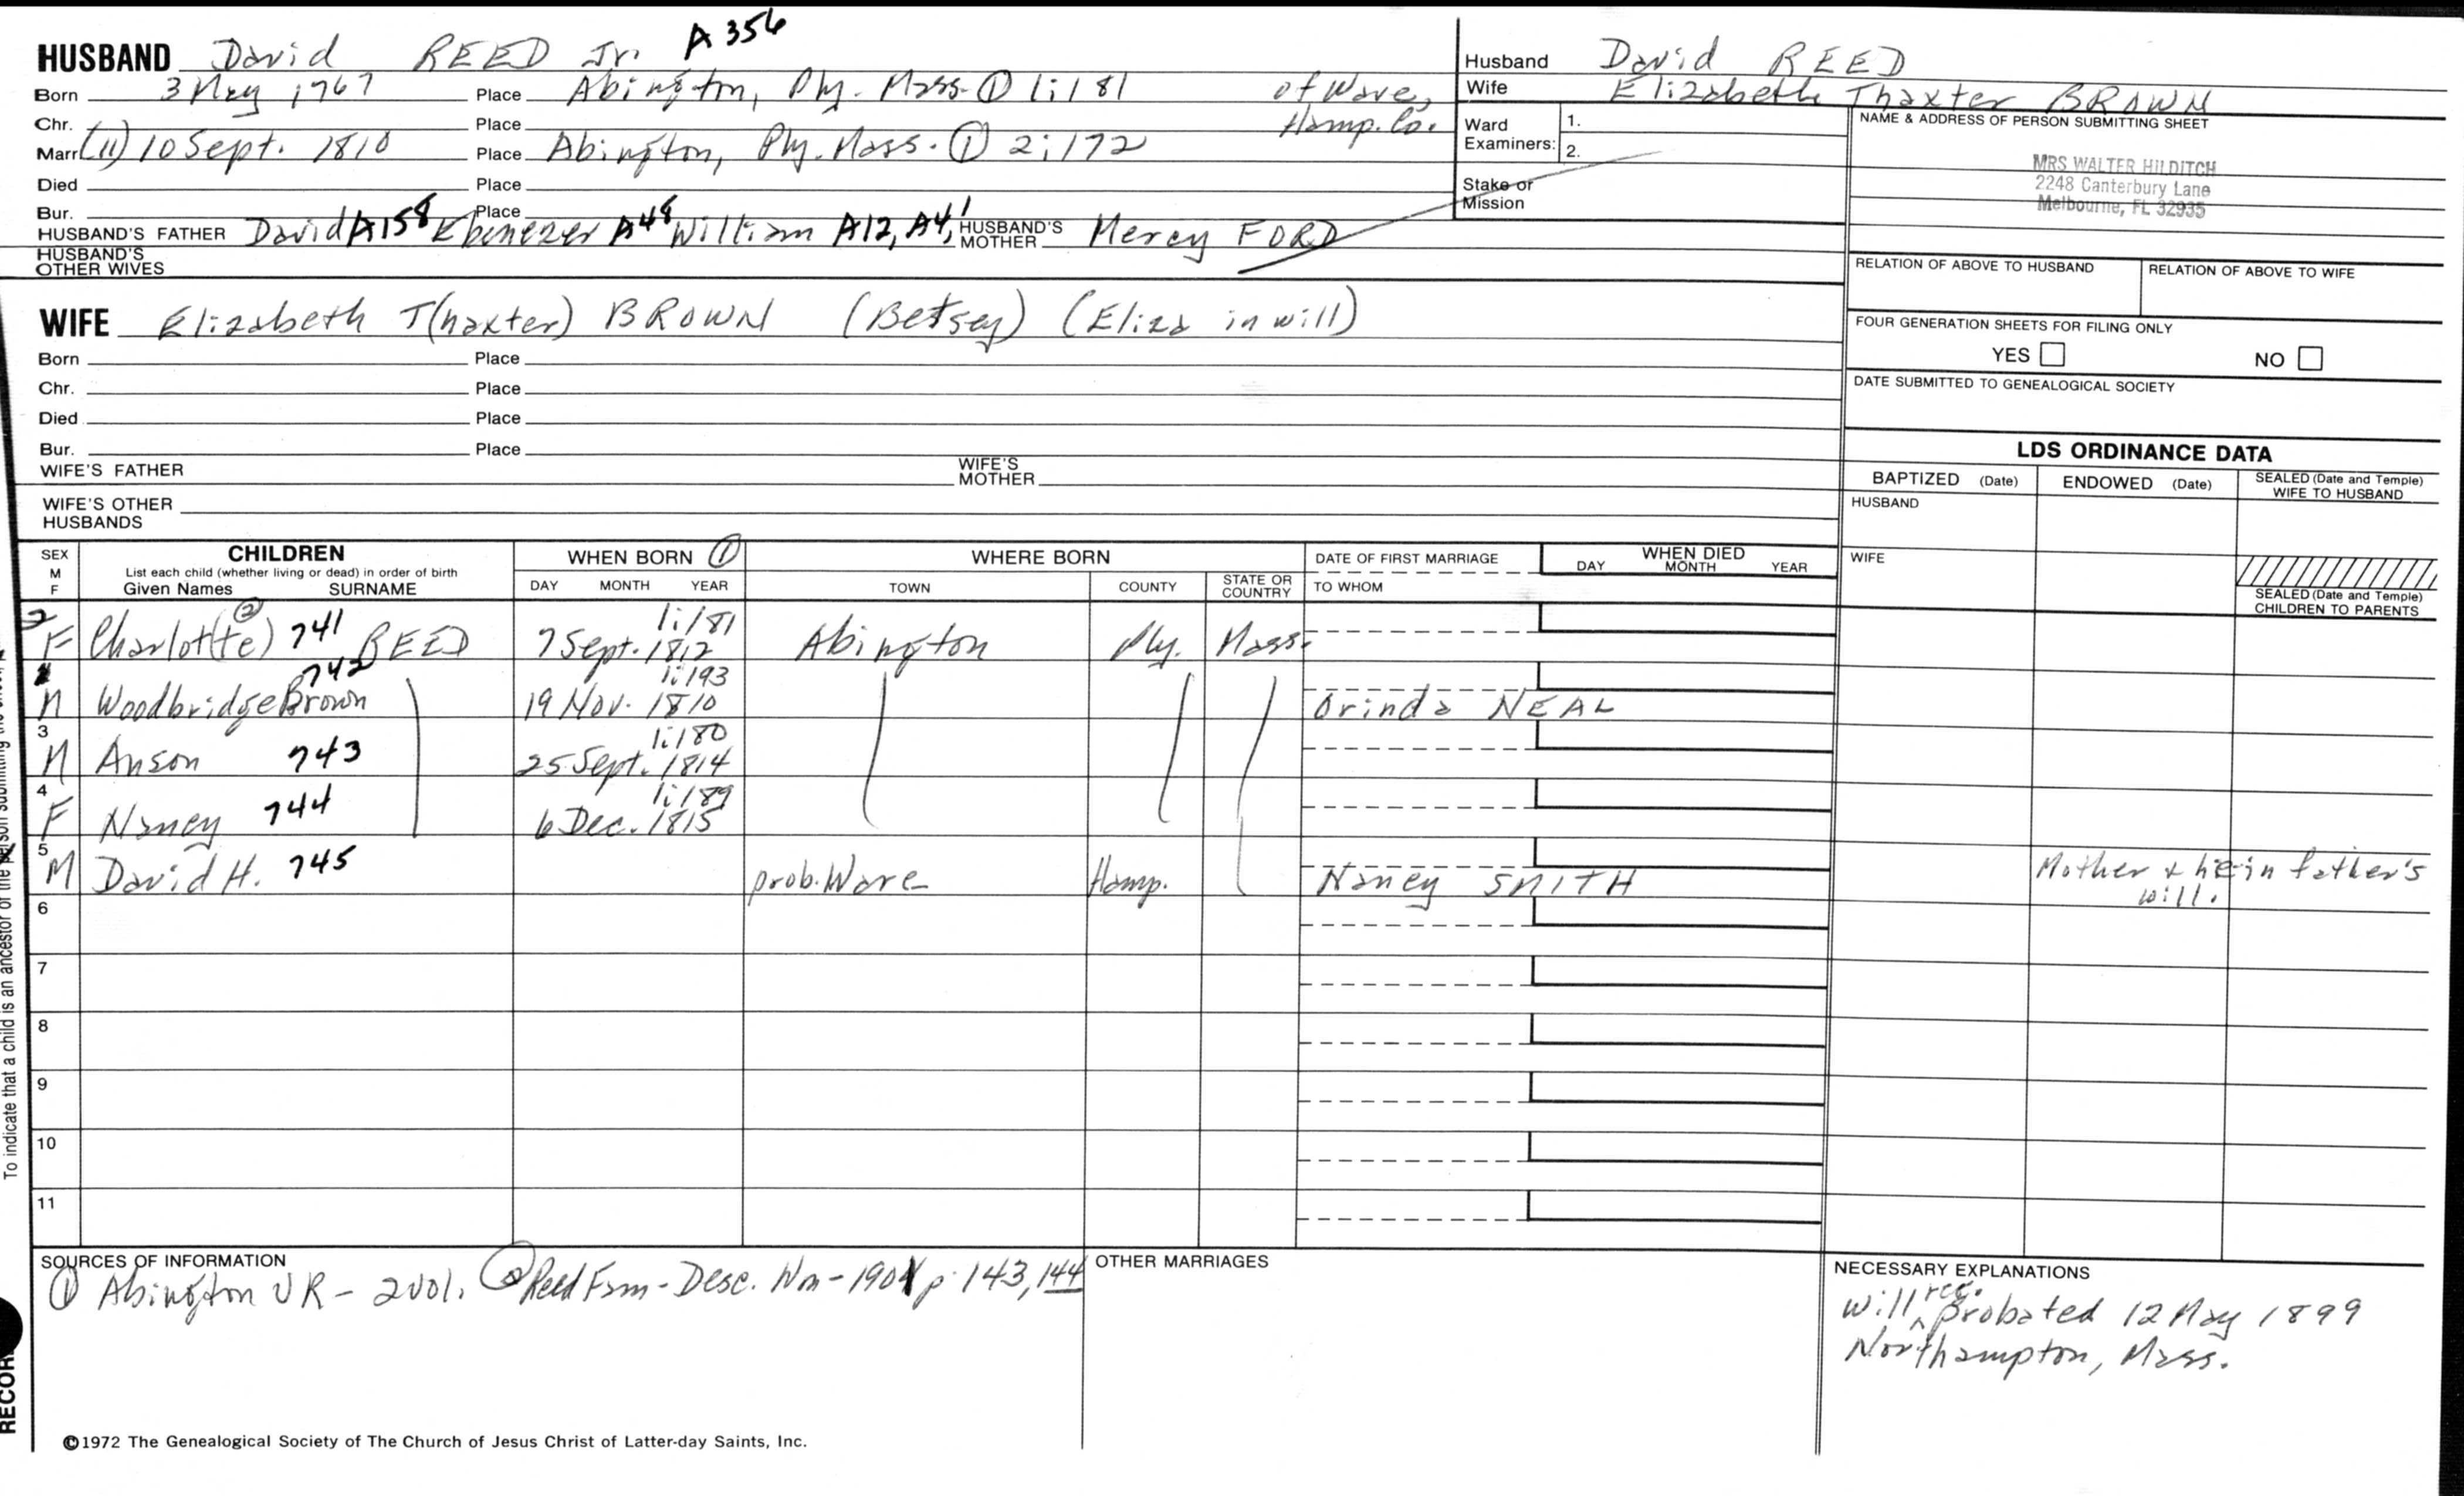 HUSBAND David REED Jr. A 356
Born 3 May 1767 Place Abington, Ply. Mass. ① 1:181 of Ware,
Chr. Place Hamp. Co.
Marr. (11) 10 Sept. 1810 Place Abington, Ply. Mass. ① 2:172
Died Place
Bur. Place
HUSBAND'S FATHER David A158 Ebenezer A48 William A12, A4, 1 HUSBAND'S MOTHER Mercy FORD
HUSBAND'S OTHER WIVES
Husband David REED
Wife Elizabeth Thaxter BROWN
Ward Examiners: 1.
2.
Stake or Mission
NAME & ADDRESS OF PERSON SUBMITTING SHEET
MRS WALTER HILDITCH
2248 Canterbury Lane
Melbourne, FL 32935
RELATION OF ABOVE TO HUSBAND RELATION OF ABOVE TO WIFE
FOUR GENERATION SHEETS FOR FILING ONLY
YES NO
DATE SUBMITTED TO GENEALOGICAL SOCIETY
WIFE Elizabeth T(haxter) BROWN (Betsey) (Eliza in will)
Born Place
Chr. Place
Died Place
Bur. Place
WIFE'S FATHER WIFE'S MOTHER
WIFE'S OTHER HUSBANDS
LDS ORDINANCE DATA
BAPTIZED (Date) ENDOWED (Date) SEALED (Date and Temple) WIFE TO HUSBAND
HUSBAND
WIFE
SEALED (Date and Temple) CHILDREN TO PARENTS
SEX M F CHILDREN WHEN BORN ① WHERE BORN DATE OF FIRST MARRIAGE WHEN DIED
List each child (whether living or dead) in order of birth
Given Names SURNAME DAY MONTH YEAR TOWN COUNTY STATE OR COUNTRY TO WHOM DAY MONTH YEAR
2 F Charlot(te) ② 741 REED 7 Sept. 1812 1:181 Abington Ply. Mass.
1 M Woodbridge Brown 742 19 Nov. 1810 1:193 Orinda NEAL
3 M Anson 743 25 Sept. 1814 1:180
4 F Nancy 744 6 Dec. 1815 1:189
5 M David H. 745 prob. Ware Hamp. Nancy SMITH Mother & he in father's will.
6
7
8
9
10
11
SOURCES OF INFORMATION
① Abington VR - 2 vol. ② Reed Fam - Desc. Wm - 1901 p. 143, 144
OTHER MARRIAGES
NECESSARY EXPLANATIONS
Will rec. Probated 12 May 1899
Northampton, Mass.
©1972 The Genealogical Society of The Church of Jesus Christ of Latter-day Saints, Inc.
To indicate that a child is an ancestor of the person submitting the
RECOR